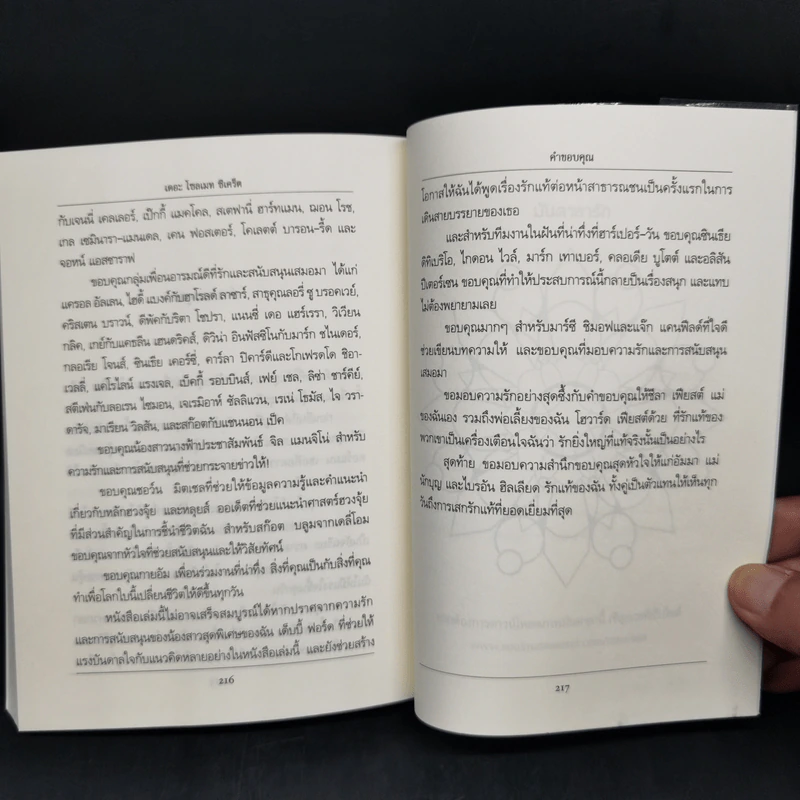 เดอะ โซลเมท ซีเคร็ต
กับเจนนี่ เคลเลอร์, เป๊กกี้ แมคโคล, สเตฟานี่ ฮาร์ทแมน, ฌอน โรช,
เกล เซมินารา-แมนเดล, เคน ฟอสเตอร์, โคเลตต์ บารอน-รี้ด และ
จอหน์ แอสซาราฟ
ขอบคุณกลุ่มเพื่อนอารมณ์ดีที่รักและสนับสนุนเสมอมา ได้แก่
แครอล อัลเลน, ไฮดี้ แบงค์กับฮาโรลต์ ลาซาร์, สาธุคุณลอรี่ ซู บรอคเวย์,
คริสเตน บราวน์, ดีพัคกับริตา โชปรา, แนนซี่ เดอ แฮร์เรรา, วิเวียน
กลิค, เกย์กับแคธลีน เฮนดริคส์, ดิวิน่า อินฟัสซิโนกับมาร์ก ชไนเดอร์,
กลอเรีย โจนส์, ซินเธีย เคอร์ซี่, คาร์ลา ปิคาร์ดีและโกเฟรดโด ชิอา-
เวลลี่, แคโรไลน์ แรงเจล, เบ็คกี้ รอบบินส์, เฟย์ เซล, ลิซ่า ชาร์คีย์,
สตีเฟนกับลอเรน ไซมอน, เจเรมีอาห์ ซัลลิแวน, เรเน่ โธมัส, ไจ วรา-
ดารัจ, มาเรียน วิลสัน, และสก๊อตกับแชนนอน เป็ค
ขอบคุณน้องสาวนางฟ้าประชาสัมพันธ์ จิล แมนจิโน่ สำหรับ
ความรักและการสนับสนุนที่ช่วยกระจายข่าวให้!
ขอบคุณชอว์น มิตเชลที่ช่วยให้ข้อมูลความรู้และคำแนะนำ
เกี่ยวกับหลักฮวงจุ้ย และหลุยส์ ออเด็ตที่ช่วยแนะนำศาสตร์ฮวงจุ้ย
ที่มีส่วนสำคัญในการชี้นำชีวิตฉัน สำหรับสก๊อต บลูมจากเดลี่โอม
ขอบคุณจากหัวใจที่ช่วยสนับสนุนและให้วิสัยทัศน์
ขอบคุณกายอัม เพื่อนร่วมงานที่น่าทึ่ง สิ่งที่คุณเป็นกับสิ่งที่คุณ
ทำเพื่อโลกใบนี้เปลี่ยนชีวิตให้ดีขึ้นทุกวัน
หนังสือเล่มนี้ไม่อาจเสร็จสมบูรณ์ได้หากปราศจากความรัก
และการสนับสนุนของน้องสาวสุดพิเศษของฉัน เด็บบี้ ฟอร์ด ที่ช่วยให้
แรงบันดาลใจกับแนวคิดหลายอย่างในหนังสือเล่มนี้ และยังช่วยสร้าง
216
คำขอบคุณ
โอกาสให้ฉันได้พูดเรื่องรักแท้ต่อหน้าสาธารณชนเป็นครั้งแรกในการ
เดินสายบรรยายของเธอ
และสำหรับทีมงานในฝันที่น่าทึ่งที่ฮาร์เปอร์-วัน ขอบคุณซินเธีย
ดิทิเบริโอ, ไกดอน ไวล์, มาร์ก เทาเบอร์, คลอเดีย บูโตต์ และอลิสัน
ปีเตอร์เซน ขอบคุณที่ทำให้ประสบการณ์นี้กลายเป็นเรื่องสนุก และแทบ
ไม่ต้องพยายามเลย
ขอบคุณมากๆ สำหรับมาร์ซี ชิมอฟและแจ๊ก แคนฟิลด์ที่ใจดี
ช่วยเขียนบทความให้ และขอบคุณที่มอบความรักและการสนับสนุน
เสมอมา
ขอมอบความรักอย่างสุดซึ้งกับคำขอบคุณให้ชีลา เฟียสต์ แม่
ของฉันเอง รวมถึงพ่อเลี้ยงของฉัน โฮวาร์ด เฟียสต์ด้วย ที่รักแท้ของ
พวกเขาเป็นเครื่องเตือนใจฉันว่า รักยิ่งใหญ่ที่แท้จริงนั้นเป็นอย่างไร
สุดท้าย ขอมอบความสำนึกขอบคุณสุดหัวใจให้แก่อัมมา แม่
นักบุญ และไบรอัน ฮิลเลียด รักแท้ของฉัน ทั้งคู่เป็นตัวแทนให้เห็นทุก
วันถึงการเสกรักแท้ที่ยอดเยี่ยมที่สุด
217